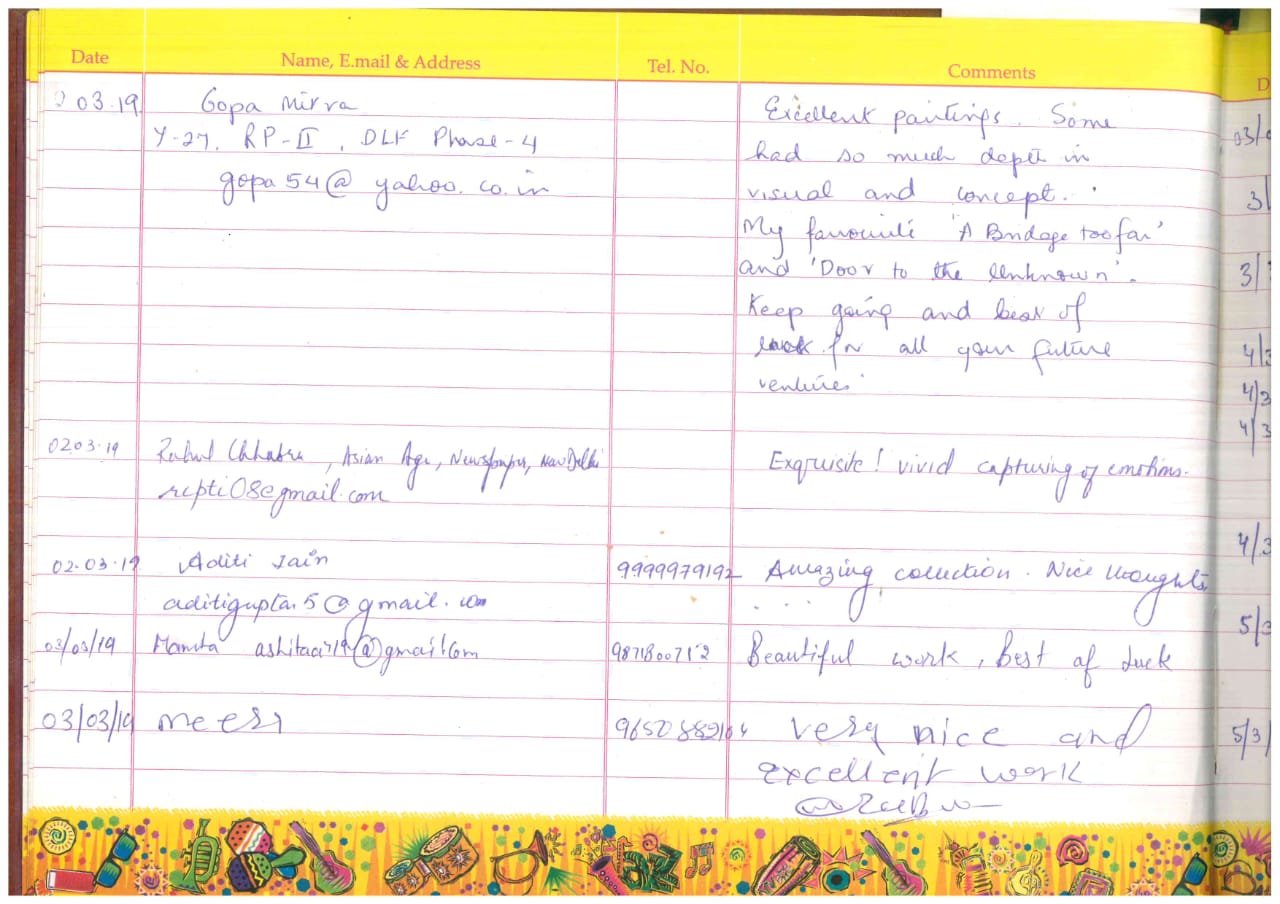 Date Name, E.mail & Address Tel. No. Comments
03.19 Gopa Mitra Excellent paintings. Some
Y-27, RP-II, DLF Phase-4 had so much depth in
gopa54@yahoo.co.in visual and concept.
My favourite 'A Bridge too far'
and 'Door to the Unknown'.
Keep going and best of
luck for all your future
ventures
02.03.19 Rahul Chhabra, Asian Age, Newspaper, New Delhi Exquisite! vivid capturing of emotions.
@gmail.com
02.03.19 Aditi Jain 9999979192 Amazing collection. Nice thoughts.
aditigupta.5@gmail.com
03/03/19 Mamta @gmail.com Beautiful work, Best of Luck
03/03/19 meera very nice and
excellent work
D
03/
3/
3/
4/3
4/3
4/3
4/3
5/3
5/3/